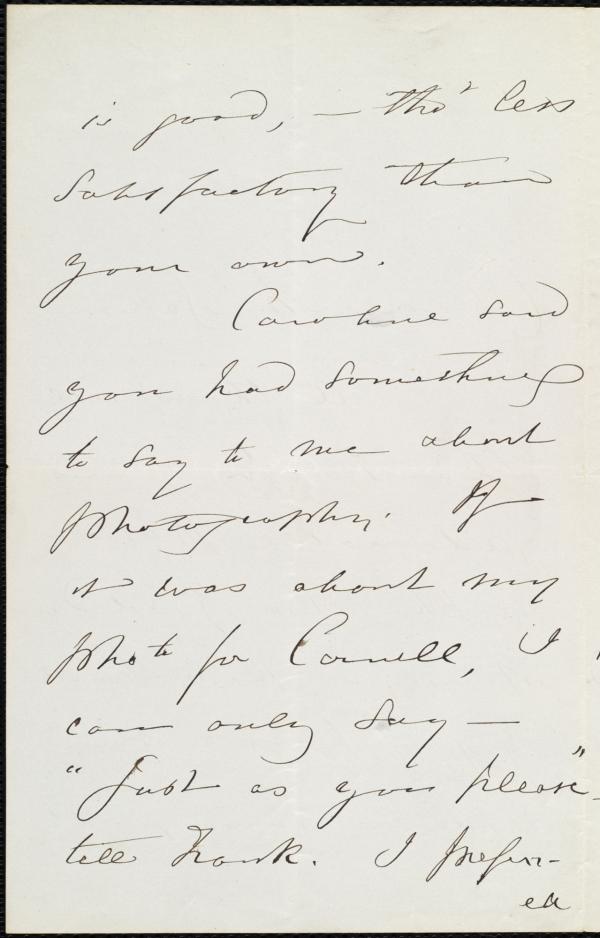 is good, — tho' less
satisfactory than
your own.
Caroline said
you had something
to say to me about
photography. If
it was about my
photo for Cornell, I
can only say —
"Just as you please"
tell Frank. I preferr-
ed